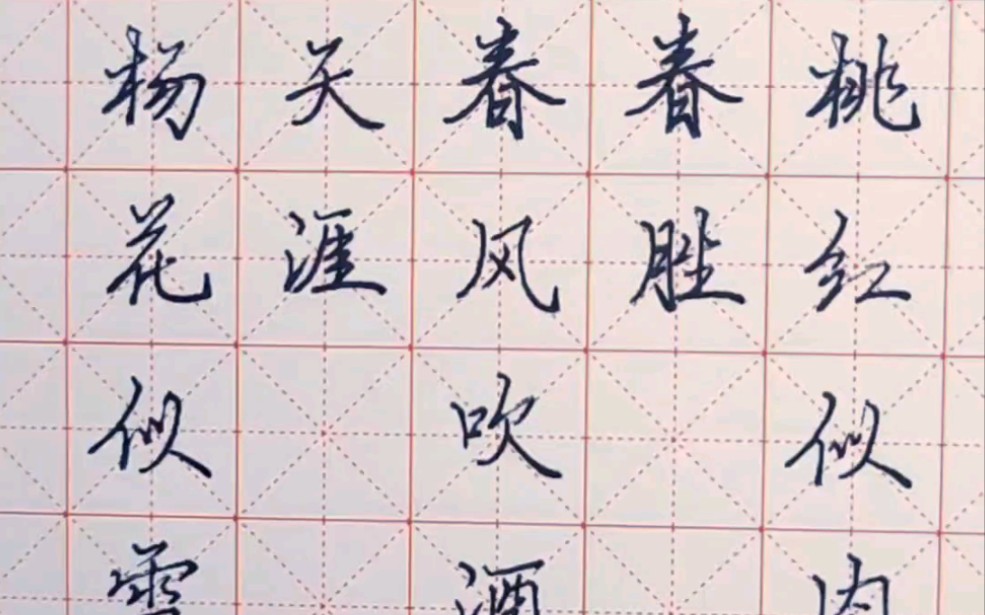 桃红似
春胜
春风吹酒
天涯
杨花似雪